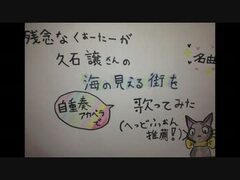 残念なくぁーたーが
久石譲さんの
海の見える街を
自重奏
アカペラで
歌ってみた
(へっどふぉん
推薦!)
名曲